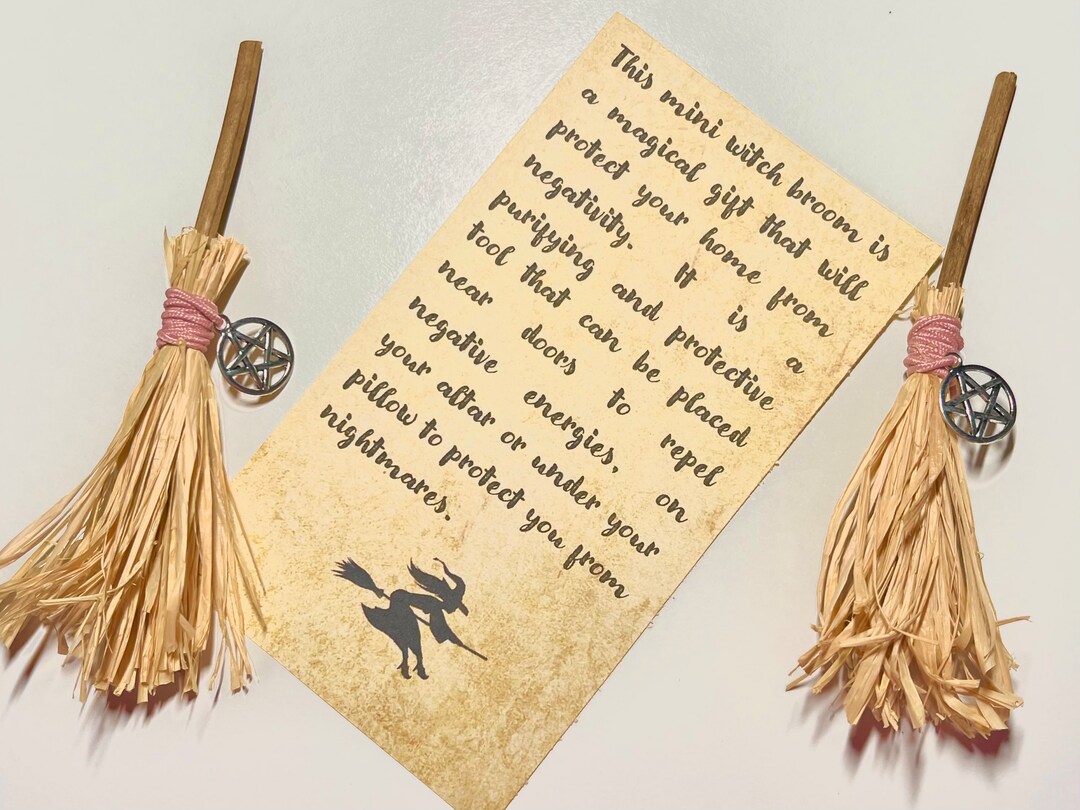 This mini witch broom is
a magical gift that will
protect your home from
negativity. It is a
purifying and protective
tool that can be placed
near doors to repel
negative energies, on
your altar or under your
pillow to protect you from
nightmares.